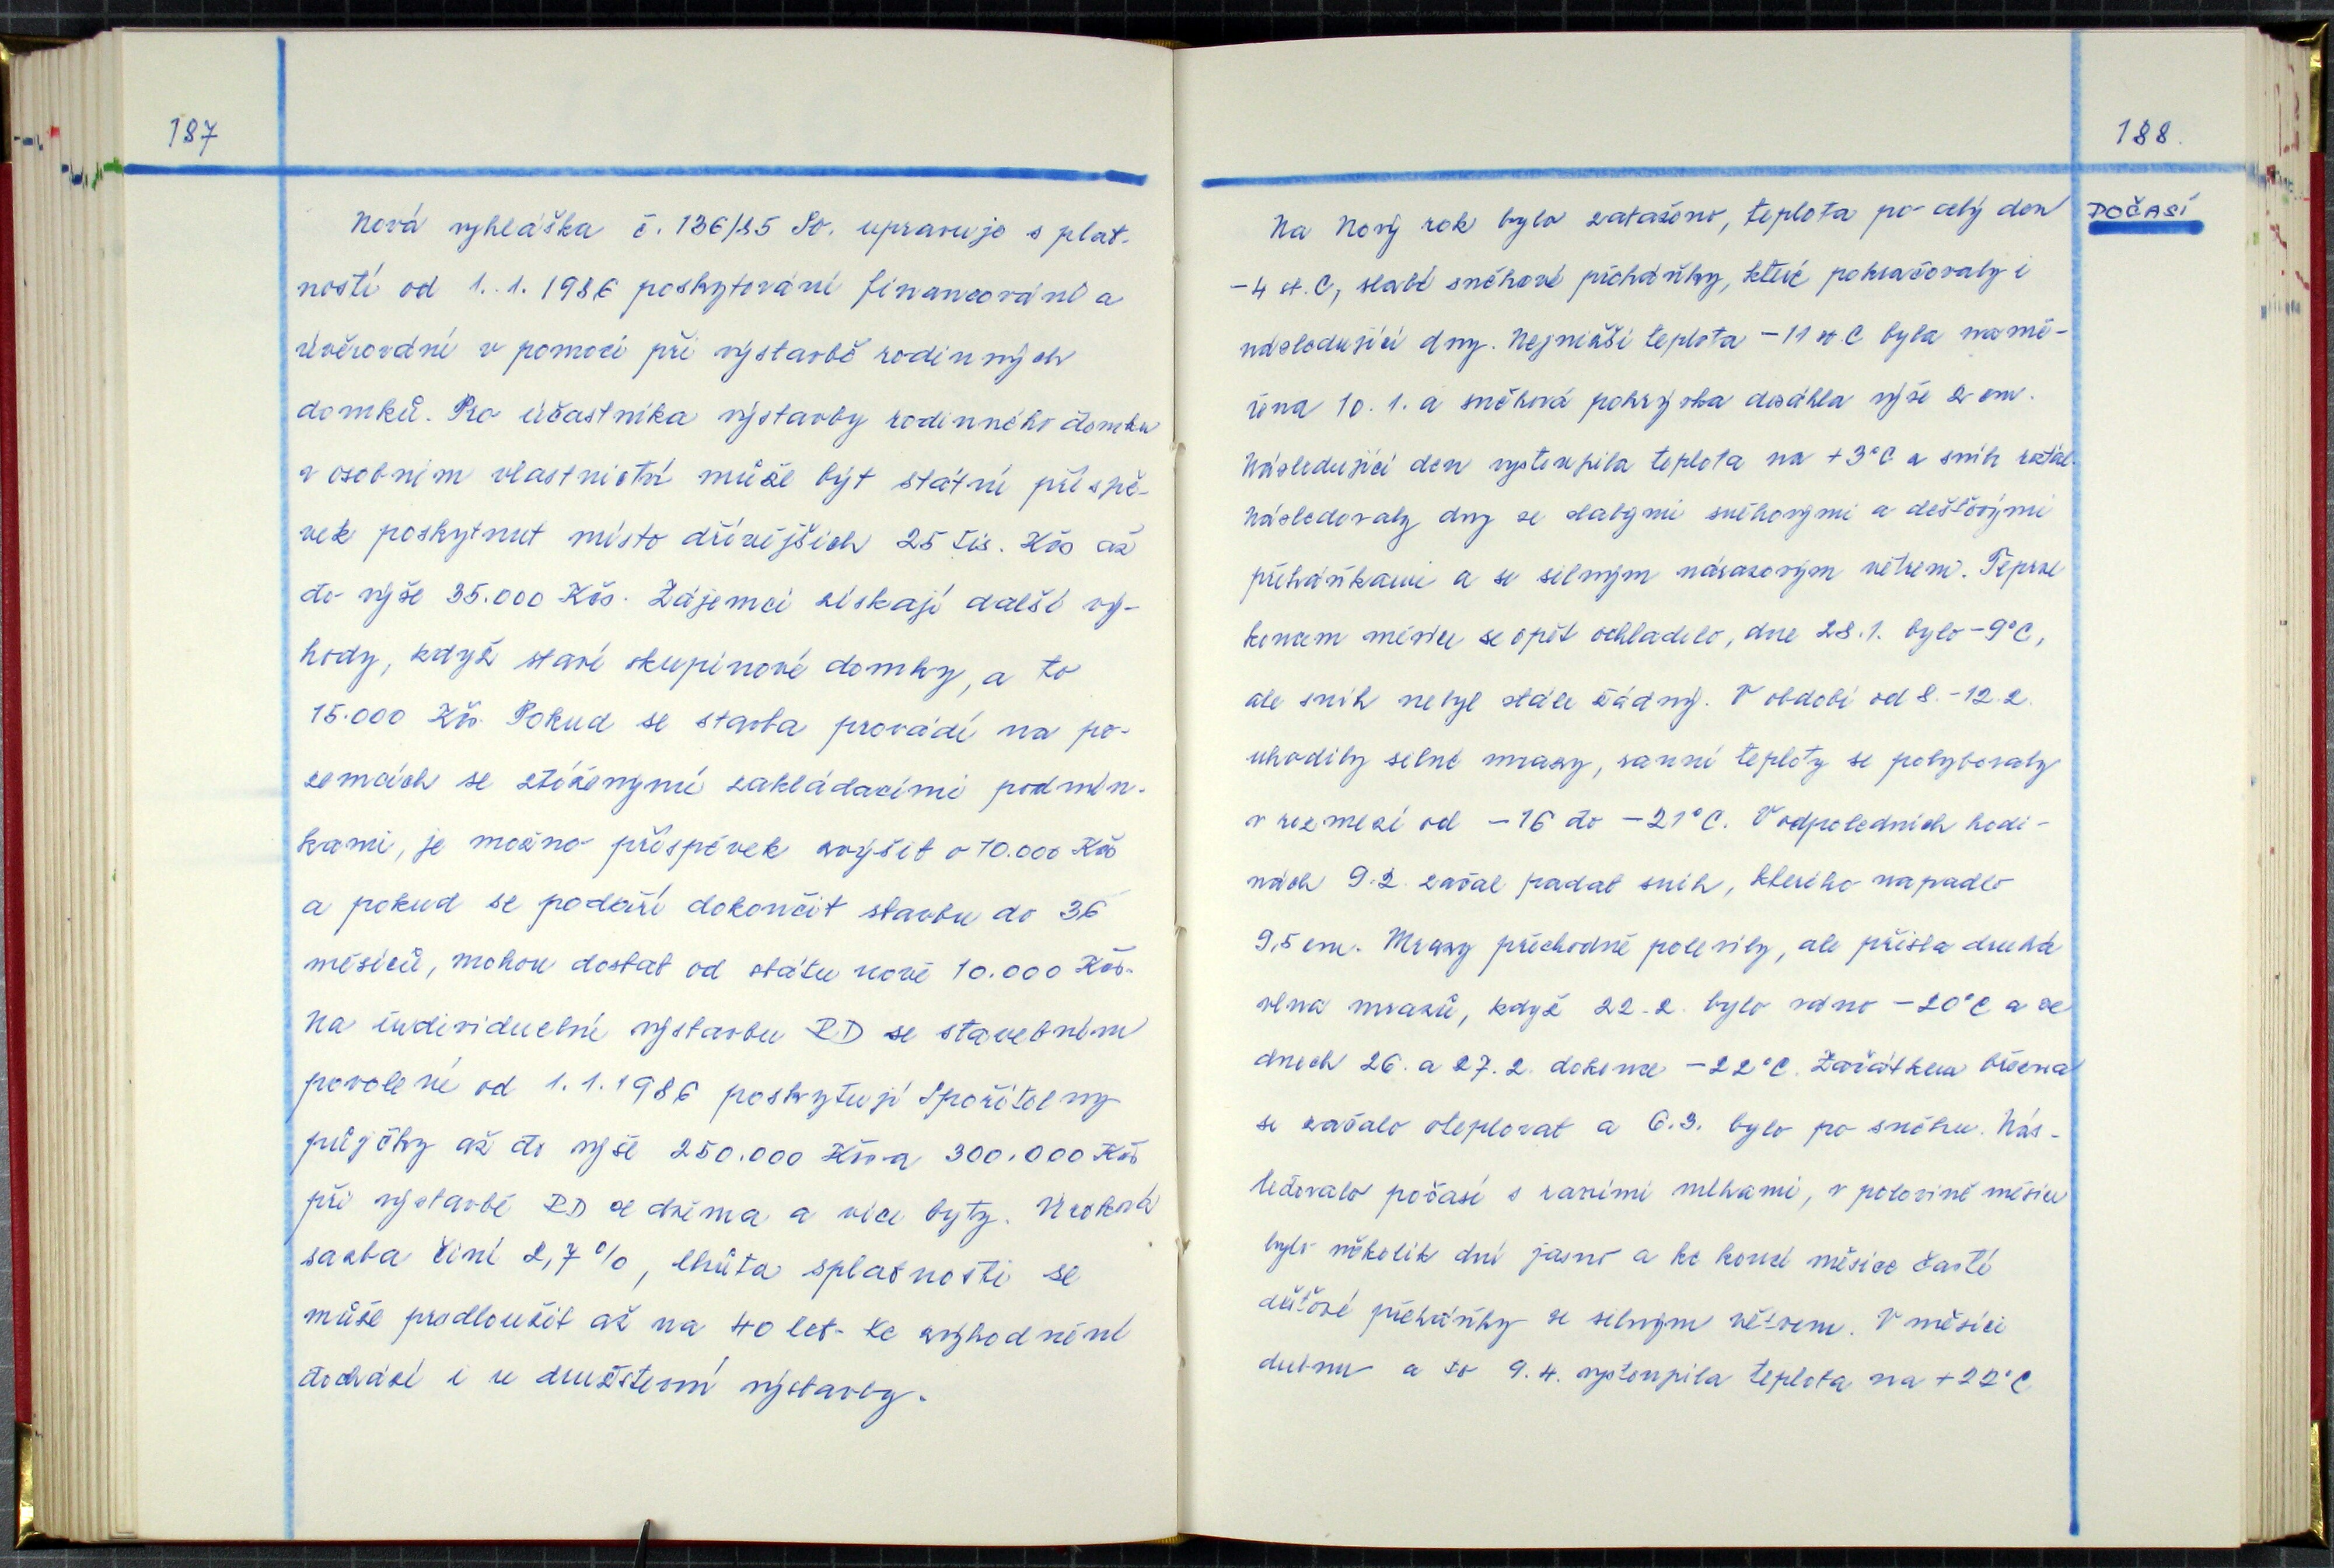 187
Nová vyhláška č. 136/85 Sb. upravuje s plat-
ností od 1. 1. 1986 poskytování financování a
úvěrování v pomoci při výstavbě rodinných
domků. Pro účastníka výstavby rodinného domku
v osobním vlastnictví může být státní příspě-
vek poskytnut místo dřívějších 25 tis. Kčs až
do výše 35.000 Kčs. Zájemci získají další vý-
hody, když staví skupinové domky, a to
15.000 Kčs. Pokud se stavba provádí na po-
zemcích se ztíženými zakládacími podmín-
kami, je možno příspěvek zvýšit o 10.000 Kčs
a pokud se podaří dokončit stavbu do 36
měsíců, mohou dostat od státu nově 10.000 Kčs.
Na individuelní výstavbu RD se stavebním
povolení od 1. 1. 1986 poskytují Spořitelny
půjčky až do výše 250.000 Kčs a 300.000 Kčs
při výstavbě RD se dvěma a více byty. Úroková
sazba činí 2,7 %, lhůta splatnosti se
může prodloužit až na 40 let. Ke zvýhodnění
dochází i u družstevní výstavby.
188.
POČASÍ
Na Nový rok bylo zataženo, teplota po celý den
-4 st. C, slabé sněhové přeháňky, které pokračovaly i
následující dny. Nejnižší teplota -11 st. C byla namě-
řena 10. 1. a sněhová pokrývka dosáhla výše 2 cm.
Následující den vystoupila teplota na +3°C a sníh roztál.
Následovaly dny se slabými sněhovými a dešťovými
přeháňkami a se silným nárazovým větrem. Teprve
koncem měsíce se opět ochladilo, dne 28. 1. bylo -9°C,
ale sníh nebyl stále žádný. V období od 8. - 12. 2.
uhodily silné mrazy, ranní teploty se pohybovaly
v rozmezí od -16 do -21°C. V odpoledních hodi-
nách 9. 2. začal padat sníh, kterého napadlo
9,5 cm. Mrazy přechodně polevily, ale přišla druhá
vlna mrazů, když 22. 2. bylo ráno -20°C a ve
dnech 26. a 27. 2. dokonce -22°C. Začátkem března
se začalo oteplovat a 6. 3. bylo po sněhu. Nás-
ledovalo počasí s ranními mlhami, v polovině měsíce
bylo několik dní jasno a ke konci měsíce časté
dešťové přeháňky se silným větrem. V měsíci
dubnu a to 9. 4. vystoupila teplota na +22°C